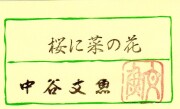 桜に菜の花
中谷文魚